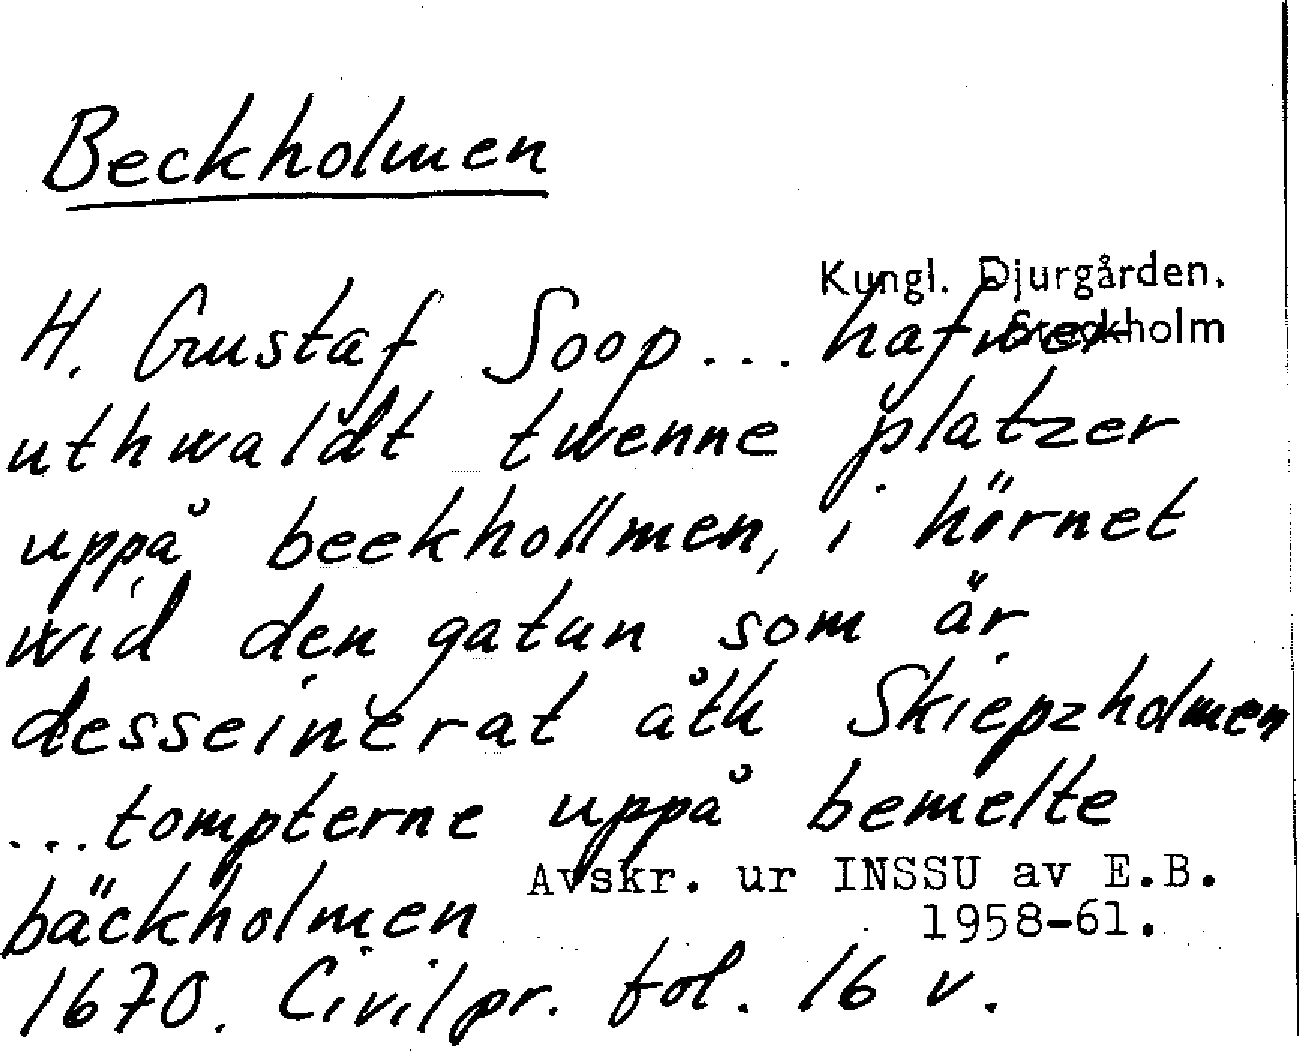 Beckholmen
Kungl. Djurgården.
Stockholm
H. Gustaf Soop... hafwer
uthwaldt twenne platzer
uppå beekhollmen, i hörnet
wid den gatun som är
desseinerat åth Skiepzholmen
...tompterne uppå bemelte
bäckholmen
Avskr. ur INSSU av E.B.
1958-61.
1670. Civilpr. fol. 16 v.